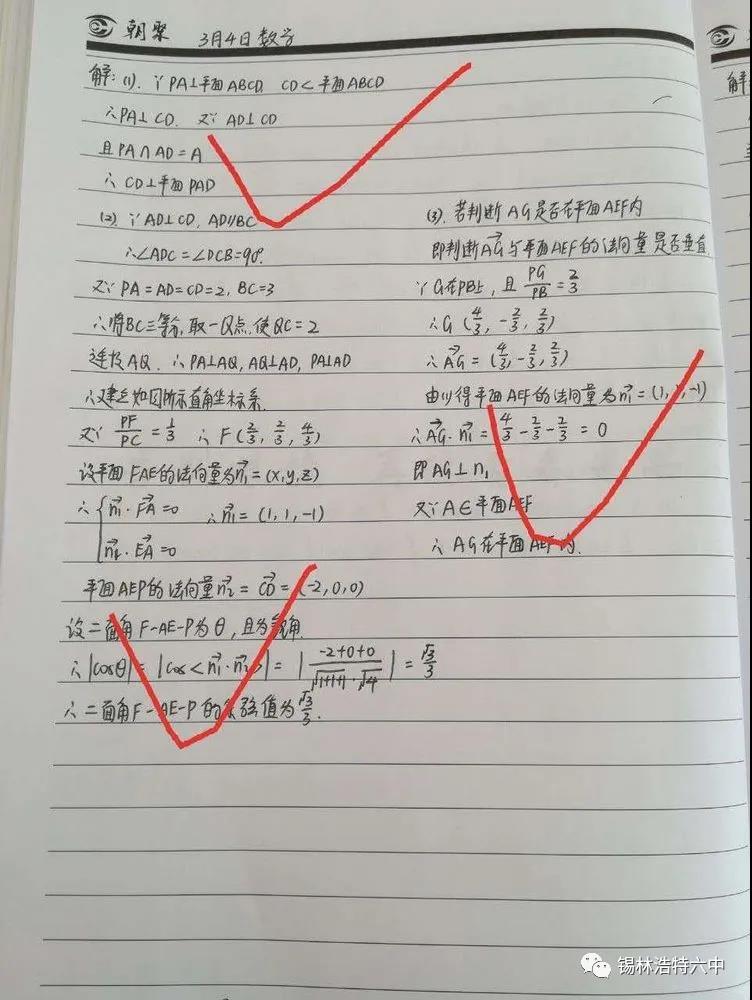 朝聚 3月4日 数学
解: (1). ∵PA⊥平面ABCD CD⊂平面ABCD
∴PA⊥CD. 又∵AD⊥CD
且PA∩AD=A
∴CD⊥平面PAD
(2). ∵AD⊥CD, AD//BC
∴∠ADC=∠DCB=90°.
又∵PA=AD=CD=2, BC=3
∴将BC三等分, 取一Q点, 使QC=2
连接AQ. ∴PA⊥AQ, AQ⊥AD, PA⊥AD
∴建立如图所示直角坐标系.
又∵ PF/PC = 1/3 ∴F(2/3, 2/3, 4/3)
设平面FAE的法向量为n₁=(x,y,z)
∴ { n₁·FA=0 ∴n₁=(1,1,-1)
n₁·EA=0
平面AEP的法向量n₂=CD=(-2,0,0)
设二面角F-AE-P为θ, 且为锐角.
∴|cosθ|=|cos<n₁·n₂>|=| (-2+0+0)/(√1+1+1·√4) |=√3/3
∴二面角F-AE-P的余弦值为√3/3.
(3). 若判断AG是否在平面AEF内
即判断AG与平面AEF的法向量是否垂直.
∵G在PB上, 且 PG/PB=2/3
∴G(4/3, -2/3, 2/3)
∴AG=(4/3, -2/3, 2/3)
由(1)得平面AEF的法向量为n₁=(1,1,-1)
∴AG·n₁=4/3-2/3-2/3=0
即AG⊥n₁
又∵A∈平面AEF
∴AG在平面AEF内.
解
锡林浩特六中